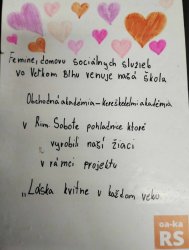 Femine, domovu sociálnych služieb
vo Veľkom Blhu venuje naša škola
Obchodná akadémia - kereskedelmi akadémia
v Rim. Sobote pohľadnice ktoré
vyrobili naší žiaci
v rámci projektu
„Láska kvitne v každom veku.
oa-ka
RS